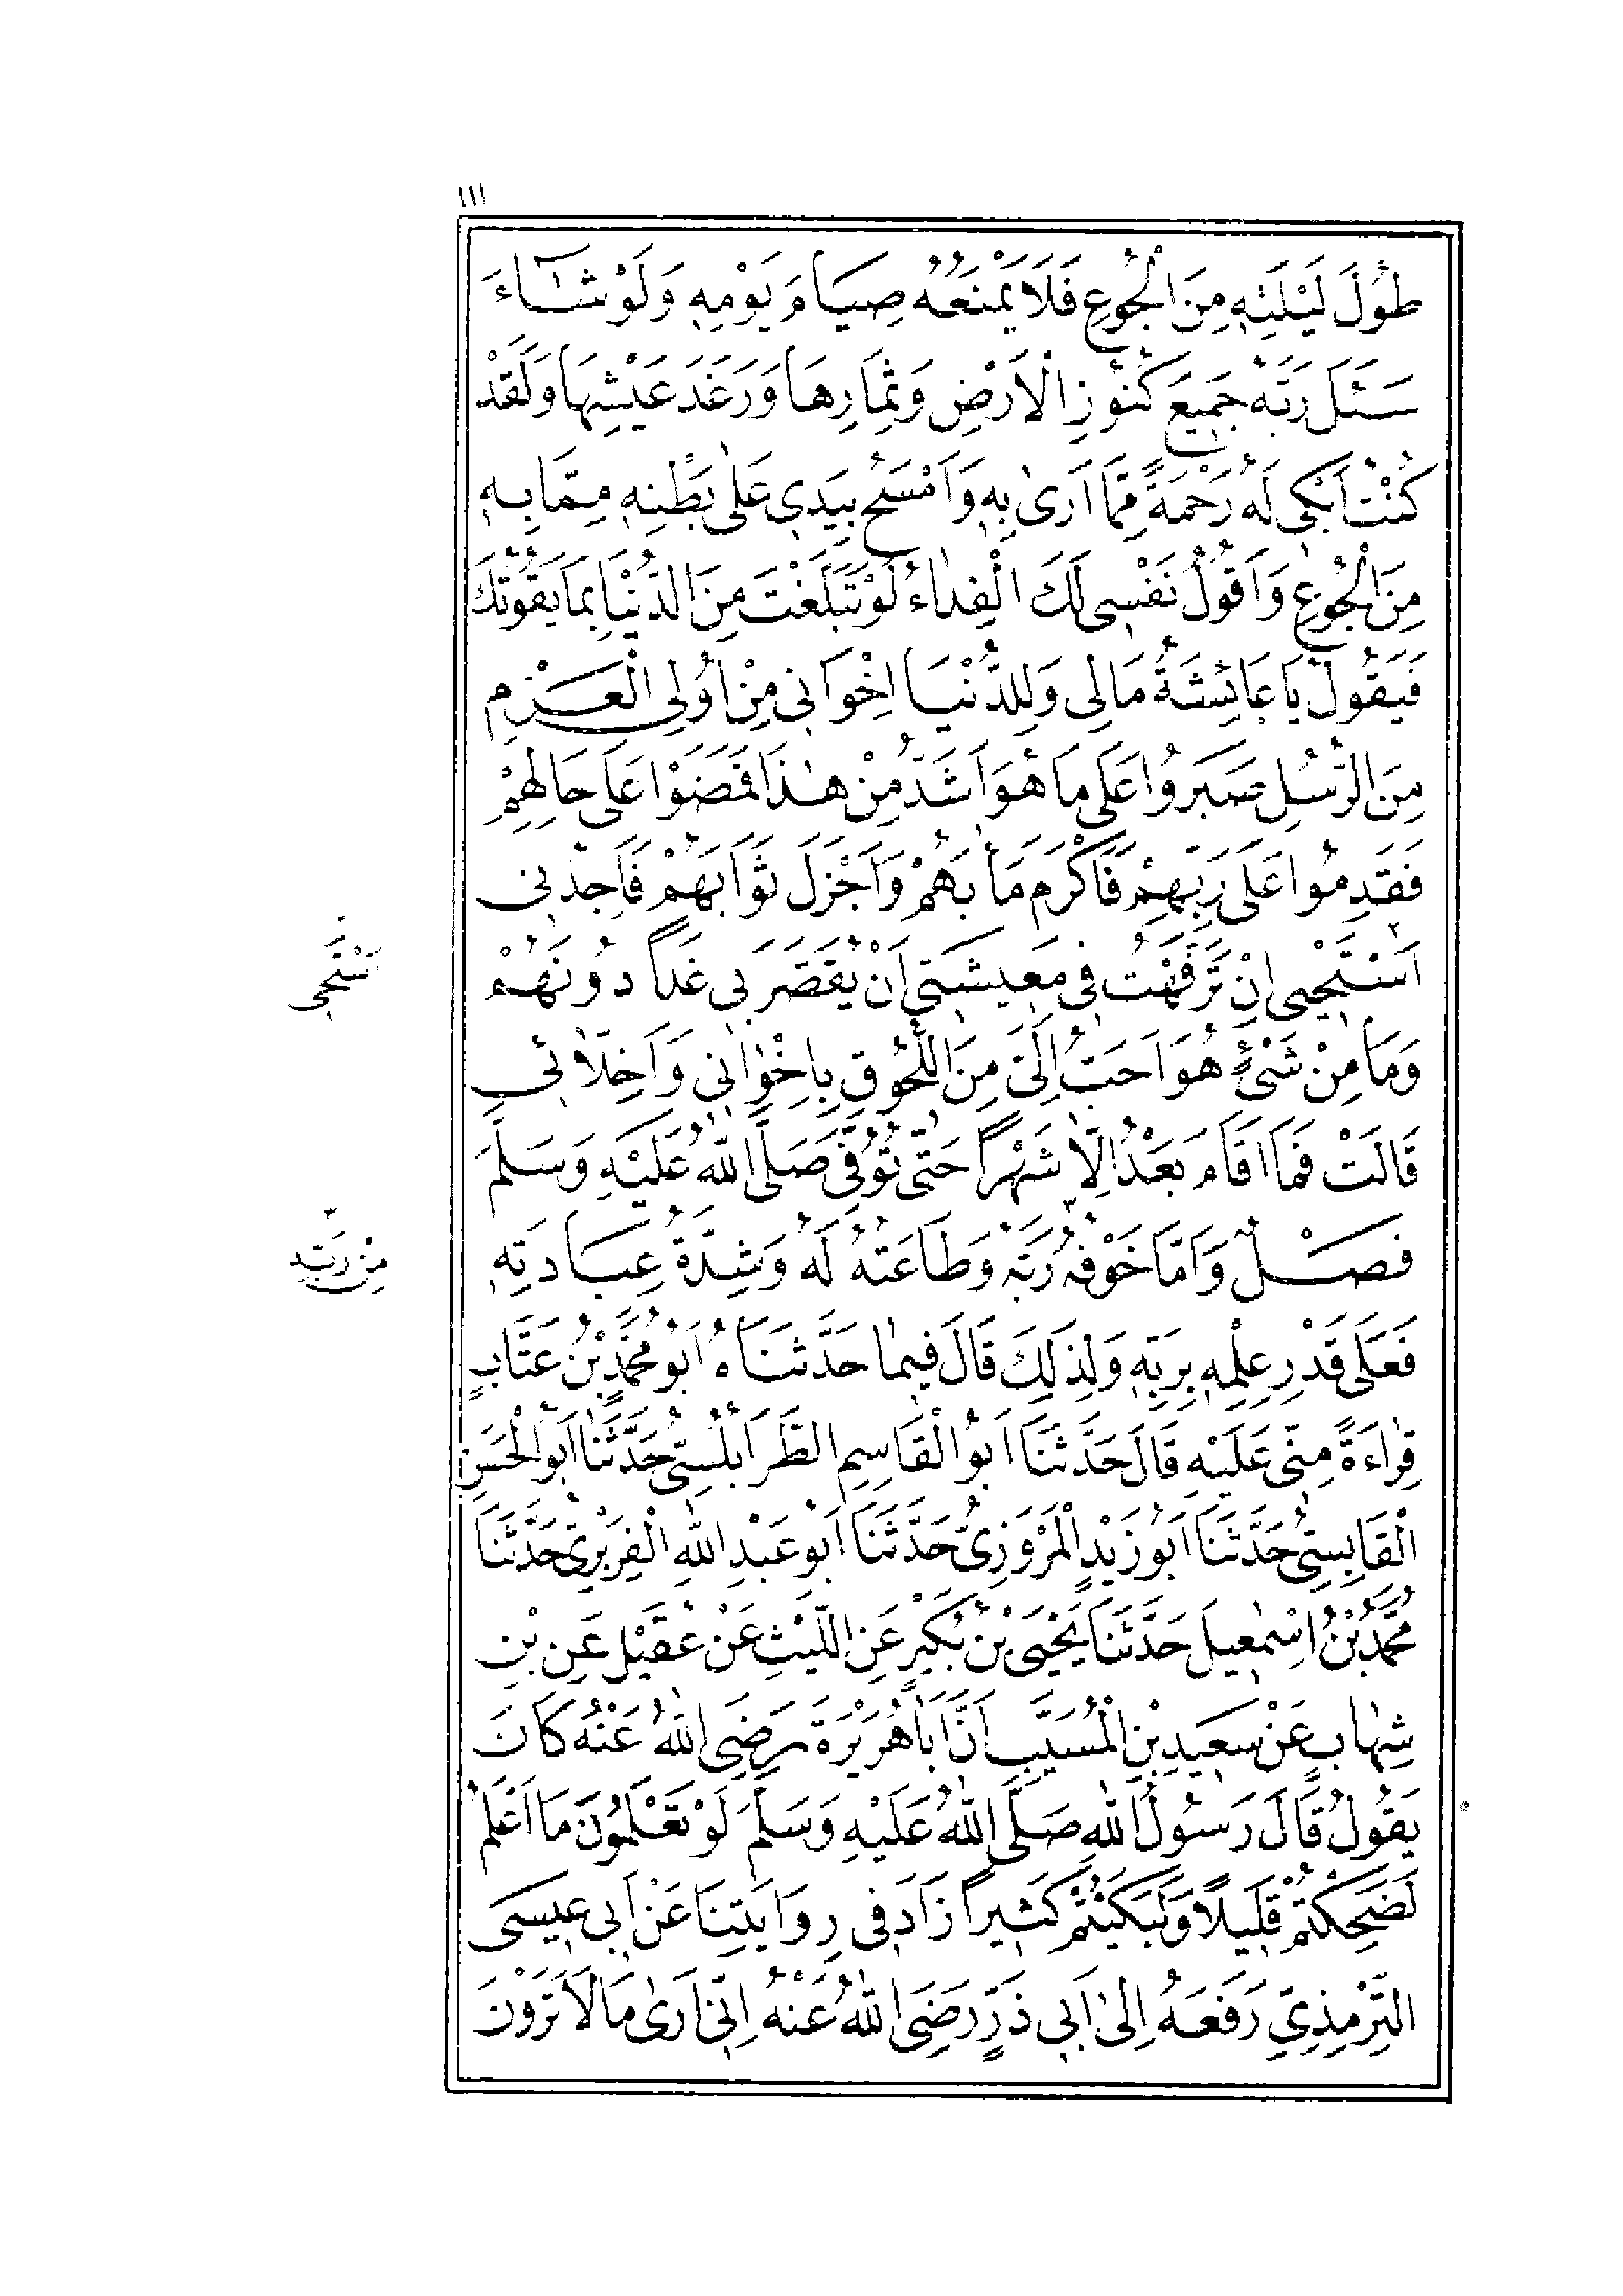 ١١١
طُولَ لَيْلَتِهِ مِنَ الْجُوعِ فَلَا يَمْنَعُهُ صِيَامَ يَوْمِهِ وَلَوْ شَاءَ
سَئَلَ رَبَّهُ جَمِيعَ كُنُوزِ الْاَرْضِ وَثِمَارِهَا وَرَغَدَ عَيْشِهَا وَلَقَدْ
كُنْتُ اَبْكِى لَهُ رَحْمَةً مِمَّا اَرٰى بِهِ وَاَمْسَحُ بِيَدِى عَلٰى بَطْنِهِ مِمَّا بِهِ
مِنَ الْجُوعِ وَاَقُولُ نَفْسِى لَكَ الْفِدَاءُ لَوْ تَبَلَّغْتَ مِنَ الدُّنْيَا بِمَا يَقُوتُكَ
فَيَقُولُ يَا عَائِشَةُ مَالِى وَلِلدُّنْيَا اِخْوَانِى مِنْ اُولِى الْعَزْمِ
مِنَ الرُّسُلِ صَبَرُوا عَلَى مَا هُوَ اَشَدُّ مِنْ هٰذَا فَمَضَوْا عَلَى حَالِهِمْ
فَقَدِمُوا عَلَى رَبِّهِمْ فَاَكْرَمَ مَاٰبَهُمْ وَاَجْزَلَ ثَوَابَهُمْ فَاَجِدُنِى
اَسْتَحْيِى اِنْ تَرَفَّهْتُ فِى مَعِيشَتِى اَنْ يُقَصَّرَ بِى غَدًا دُونَهُمْ
اَسْتَحِى
وَمَا مِنْ شَىْءٍ هُوَ اَحَبُّ اِلَىَّ مِنَ اللُّحُوقِ بِاِخْوَانِى وَاَخِلَّائِى
قَالَتْ فَمَا اَقَامَ بَعْدُ اِلَّا شَهْرًا حَتّٰى تُوُفِّىَ صَلَّى اللّٰهُ عَلَيْهِ وَسَلَّمَ
فَصْلٌ وَاَمَّا خَوْفُهُ رَبَّهُ وَطَاعَتُهُ لَهُ وَشِدَّةُ عِبَادَتِهِ
مِنْ رَبِّهِ
فَعَلَى قَدْرِ عِلْمِهِ بِرَبِّهِ وَلِذٰلِكَ قَالَ فِيمَا حَدَّثَنَاهُ اَبُو مُحَمَّدِ بْنُ عَتَّابٍ
قِرَاءَةً مِنِّى عَلَيْهِ قَالَ حَدَّثَنَا اَبُو الْقَاسِمِ الطَّرَابُلُسِىُّ حَدَّثَنَا اَبُو الْحَسَنِ
الْقَابِسِىُّ حَدَّثَنَا اَبُو زَيْدٍ الْمَرْوَزِىُّ حَدَّثَنَا اَبُو عَبْدِ اللّٰهِ الْفِرَبْرِىُّ حَدَّثَنَا
مُحَمَّدُ بْنُ اِسْمٰعِيلَ حَدَّثَنَا يَحْيَى بْنُ بُكَيْرٍ عَنِ اللَّيْثِ عَنْ عُقَيْلٍ عَنِ بْنِ
شِهَابٍ عَنْ سَعِيدِ بْنِ الْمُسَيَّبِ اَنَّ اَبَا هُرَيْرَةَ رَضِىَ اللّٰهُ عَنْهُ كَانَ
يَقُولُ قَالَ رَسُولُ اللّٰهِ صَلَّى اللّٰهُ عَلَيْهِ وَسَلَّمَ لَوْ تَعْلَمُونَ مَا اَعْلَمُ
لَضَحِكْتُمْ قَلِيلًا وَلَبَكَيْتُمْ كَثِيرًا زَادَ فِى رِوَايَتِنَا عَنْ اَبِى عِيسَى
التِّرْمِذِىِّ رَفَعَهُ اِلٰى اَبِى ذَرٍّ رَضِىَ اللّٰهُ عَنْهُ اِنِّى اَرٰى مَا لَا تَرَوْنَ